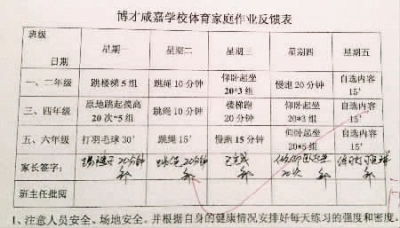 博才咸嘉学校体育家庭作业反馈表
班级 日期 星期一 星期二 星期三 星期四 星期五
一、二年级 跳楼梯5组 跳绳10分钟 仰卧起坐 20*3组 慢跑20分钟 自选内容 15'
三、四年级 原地跳起摸高 20次*5组 跳绳10分钟 楼梯跑 20分钟 仰卧起坐 20*3组 自选内容 15'
五、六年级 打羽毛球30' 跳绳15' 慢跑15分钟 仰卧起坐 20*5组 自选内容 15'
家长签字: 20分钟 跳绳20分钟 已完成 仰卧起坐 20次
班主任批阅
1、注意人员安全、场地安全,并根据自身的健康情况安排好每天练习的强度和密度。